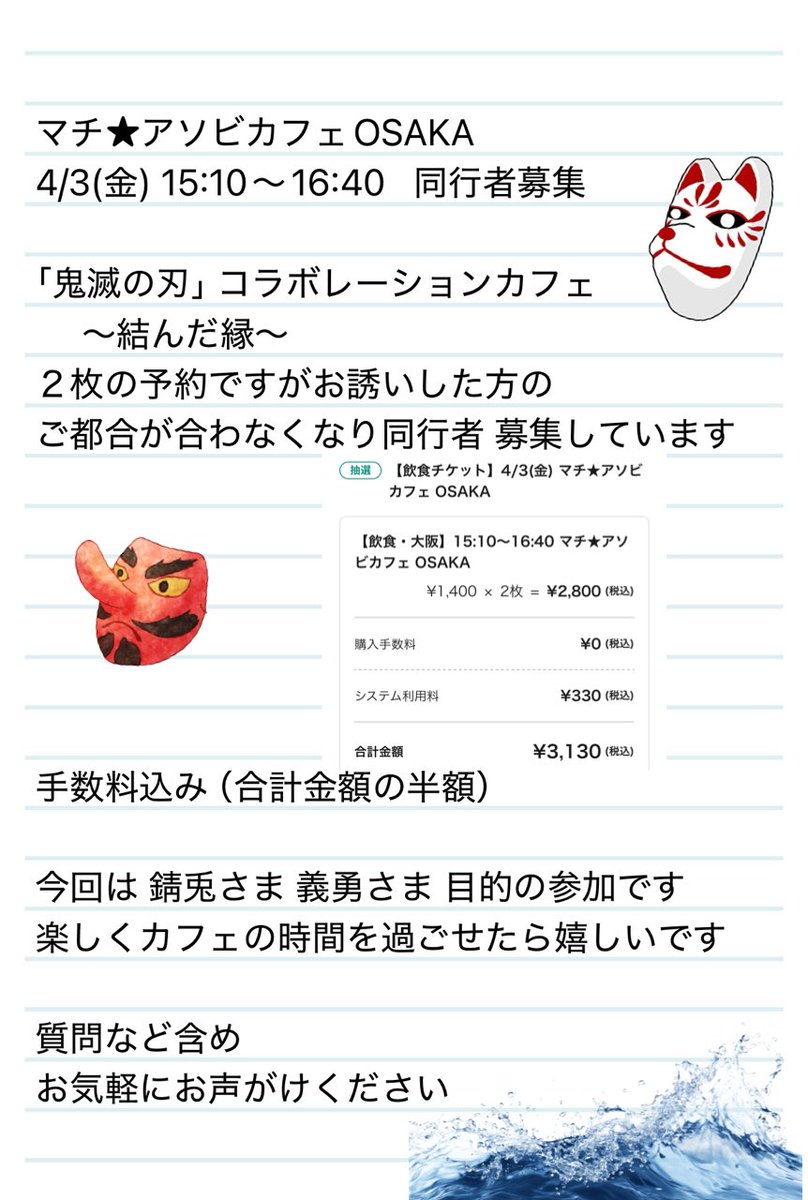 マチ★アソビカフェOSAKA
4/3(金) 15:10〜16:40 同行者募集
「鬼滅の刃」コラボレーションカフェ
〜結んだ縁〜
２枚の予約ですがお誘いした方の
ご都合が合わなくなり同行者 募集しています
抽選 【飲食チケット】4/3(金) マチ★アソビ
カフェ OSAKA
【飲食・大阪】15:10〜16:40 マチ★アソ
ビカフェ OSAKA
¥1,400 × 2枚 = ¥2,800 (税込)
購入手数料 ¥0 (税込)
システム利用料 ¥330 (税込)
合計金額 ¥3,130 (税込)
手数料込み（合計金額の半額）
今回は 錆兎さま 義勇さま 目的の参加です
楽しくカフェの時間を過ごせたら嬉しいです
質問など含め
お気軽にお声がけください